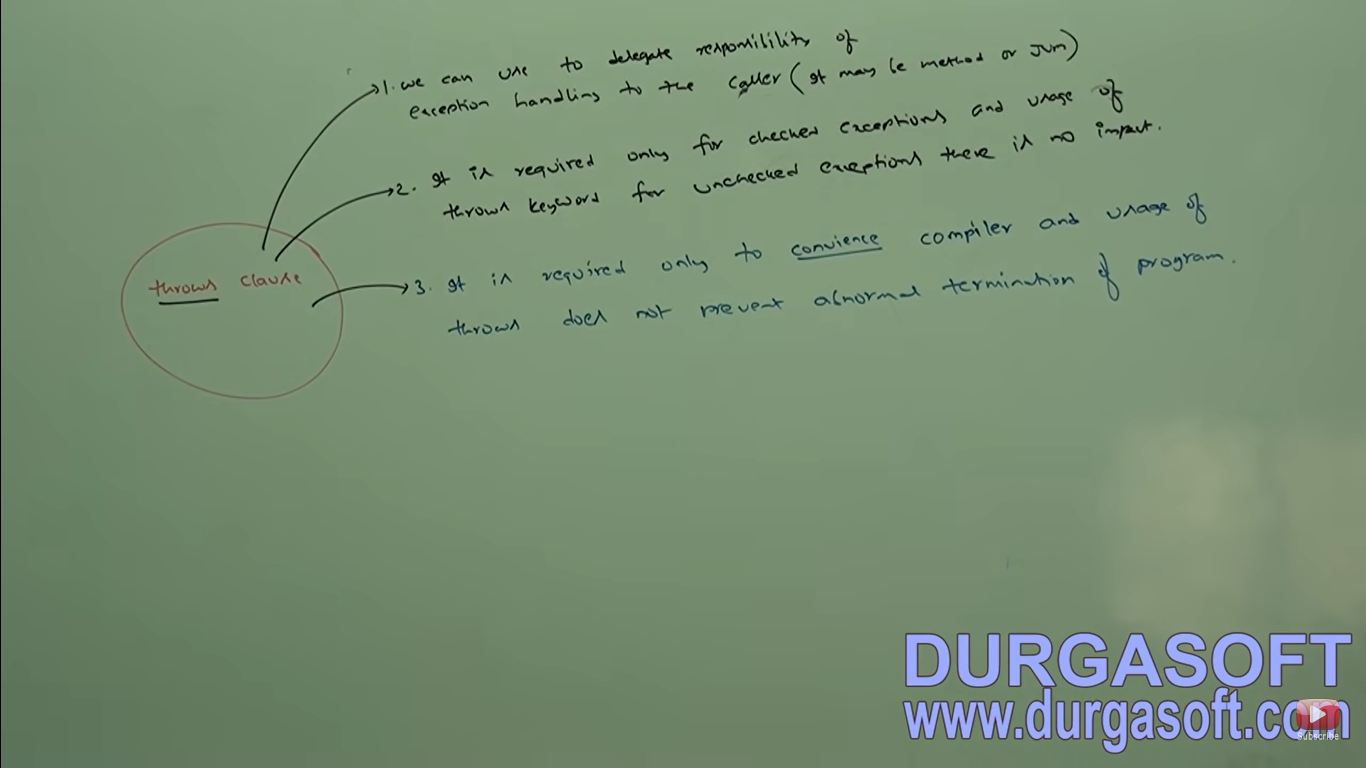 1. we can use to delegate responsibility of
exception handling to the caller (It may be method or JVM)
2. It is required only for checked exceptions and usage of
throws keyword for unchecked exceptions there is no impact.
throws clause
3. It is required only to convience compiler and usage of
throws does not prevent abnormal termination of program.
DURGASOFT
www.durgasoft.com
Subscribe